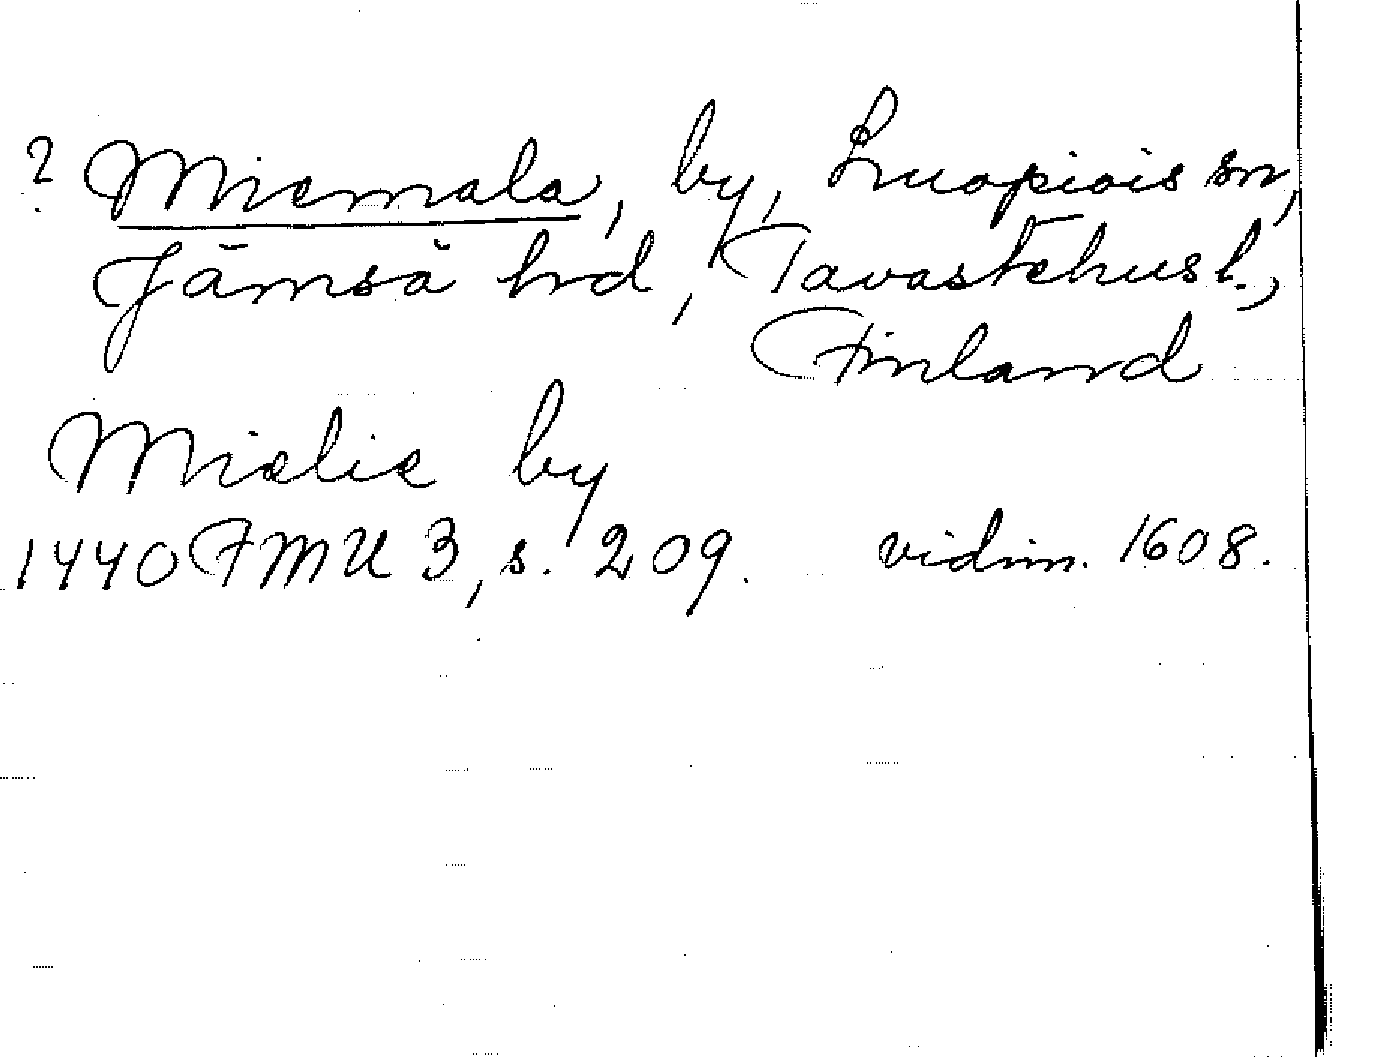 ? Miemala, by, Luopiois sn,
Jämsä hd, Tavastehusl.,
Finland
Mielie by
1440 FMU 3, s. 209. vidim. 1608.